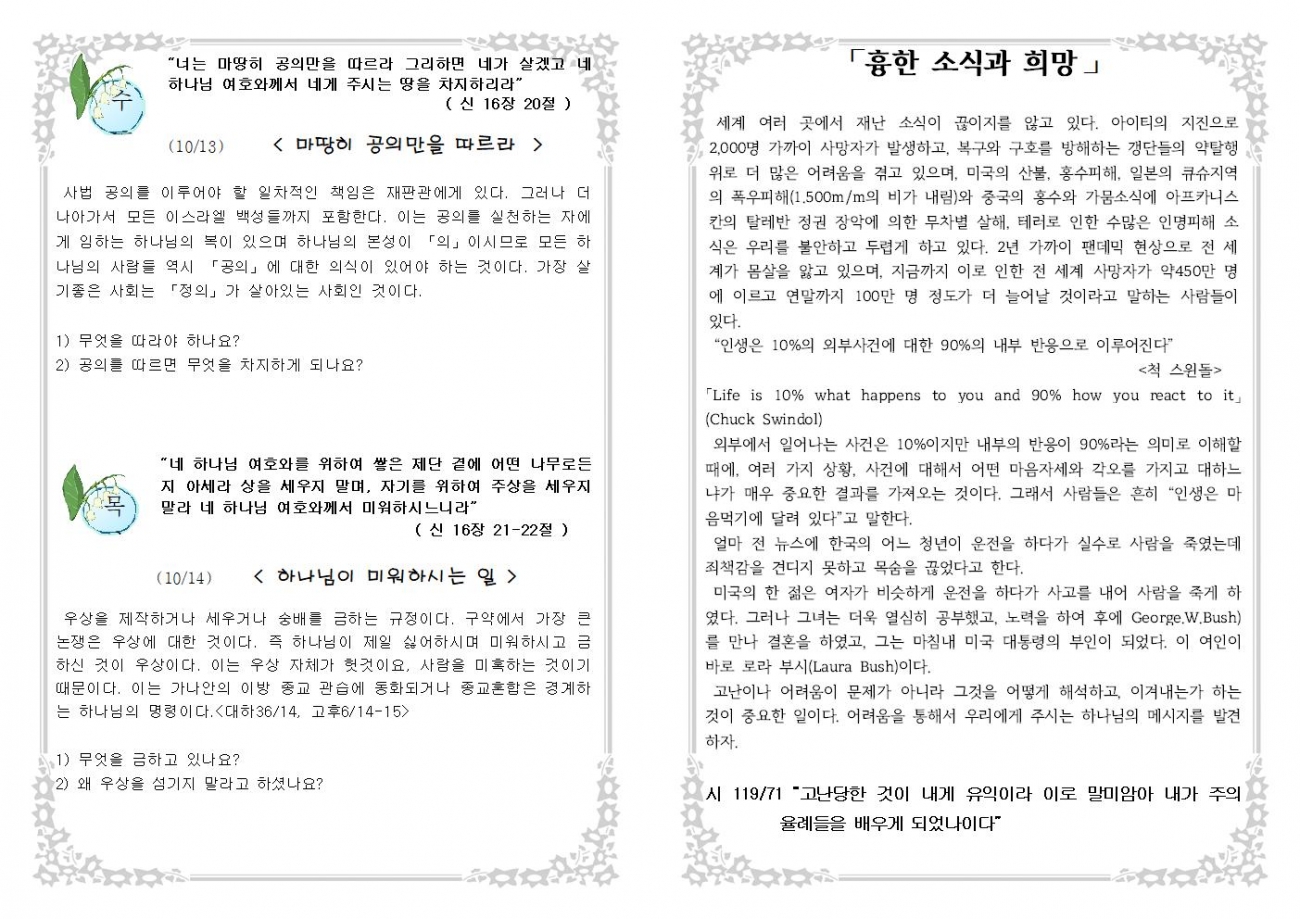 수
"너는 마땅히 공의만을 따르라 그리하면 네가 살겠고 네
하나님 여호와께서 네게 주시는 땅을 차지하리라"
( 신 16장 20절 )
(10/13) < 마땅히 공의만을 따르라 >
사법 공의를 이루어야 할 일차적인 책임은 재판관에게 있다. 그러나 더
나아가서 모든 이스라엘 백성들까지 포함한다. 이는 공의를 실천하는 자에
게 임하는 하나님의 복이 있으며 하나님의 본성이 「의」이시므로 모든 하
나님의 사람들 역시 「공의」에 대한 의식이 있어야 하는 것이다. 가장 살
기좋은 사회는 「정의」가 살아있는 사회인 것이다.
1) 무엇을 따라야 하나요?
2) 공의를 따르면 무엇을 차지하게 되나요?
목
"네 하나님 여호와를 위하여 쌓은 제단 곁에 어떤 나무로든
지 아세라 상을 세우지 말며, 자기를 위하여 주상을 세우지
말라 네 하나님 여호와께서 미워하시느니라"
( 신 16장 21-22절 )
(10/14) < 하나님이 미워하시는 일 >
우상을 제작하거나 세우거나 숭배를 금하는 규정이다. 구약에서 가장 큰
논쟁은 우상에 대한 것이다. 즉 하나님이 제일 싫어하시며 미워하시고 금
하신 것이 우상이다. 이는 우상 자체가 헛것이요, 사람을 미혹하는 것이기
때문이다. 이는 가나안의 이방 종교 관습에 동화되거나 종교혼합은 경계하
는 하나님의 명령이다.<대하36/14, 고후6/14-15>
1) 무엇을 금하고 있나요?
2) 왜 우상을 섬기지 말라고 하셨나요?
「흉한 소식과 희망」
세계 여러 곳에서 재난 소식이 끊이지를 않고 있다. 아이티의 지진으로
2,000명 가까이 사망자가 발생하고, 복구와 구호를 방해하는 갱단들의 약탈행
위로 더 많은 어려움을 겪고 있으며, 미국의 산불, 홍수피해, 일본의 큐슈지역
의 폭우피해(1,500m/m의 비가 내림)와 중국의 홍수와 가뭄소식에 아프카니스
칸의 탈레반 정권 장악에 의한 무차별 살해, 테러로 인한 수많은 인명피해 소
식은 우리를 불안하고 두렵게 하고 있다. 2년 가까이 팬데믹 현상으로 전 세
계가 몸살을 앓고 있으며, 지금까지 이로 인한 전 세계 사망자가 약450만 명
에 이르고 연말까지 100만 명 정도가 더 늘어날 것이라고 말하는 사람들이
있다.
"인생은 10%의 외부사건에 대한 90%의 내부 반응으로 이루어진다"
<척 스윈돌>
「Life is 10% what happens to you and 90% how you react to it」
(Chuck Swindol)
외부에서 일어나는 사건은 10%이지만 내부의 반응이 90%라는 의미로 이해할
때에, 여러 가지 상황, 사건에 대해서 어떤 마음자세와 각오를 가지고 대하느
냐가 매우 중요한 결과를 가져오는 것이다. 그래서 사람들은 흔히 "인생은 마
음먹기에 달려 있다"고 말한다.
얼마 전 뉴스에 한국의 어느 청년이 운전을 하다가 실수로 사람을 죽였는데
죄책감을 견디지 못하고 목숨을 끊었다고 한다.
미국의 한 젊은 여자가 비슷하게 운전을 하다가 사고를 내어 사람을 죽게 하
였다. 그러나 그녀는 더욱 열심히 공부했고, 노력을 하여 후에 George.W.Bush)
를 만나 결혼을 하였고, 그는 마침내 미국 대통령의 부인이 되었다. 이 여인이
바로 로라 부시(Laura Bush)이다.
고난이나 어려움이 문제가 아니라 그것을 어떻게 해석하고, 이겨내는가 하는
것이 중요한 일이다. 어려움을 통해서 우리에게 주시는 하나님의 메시지를 발견
하자.
시 119/71 "고난당한 것이 내게 유익이라 이로 말미암아 내가 주의
율례들을 배우게 되었나이다"